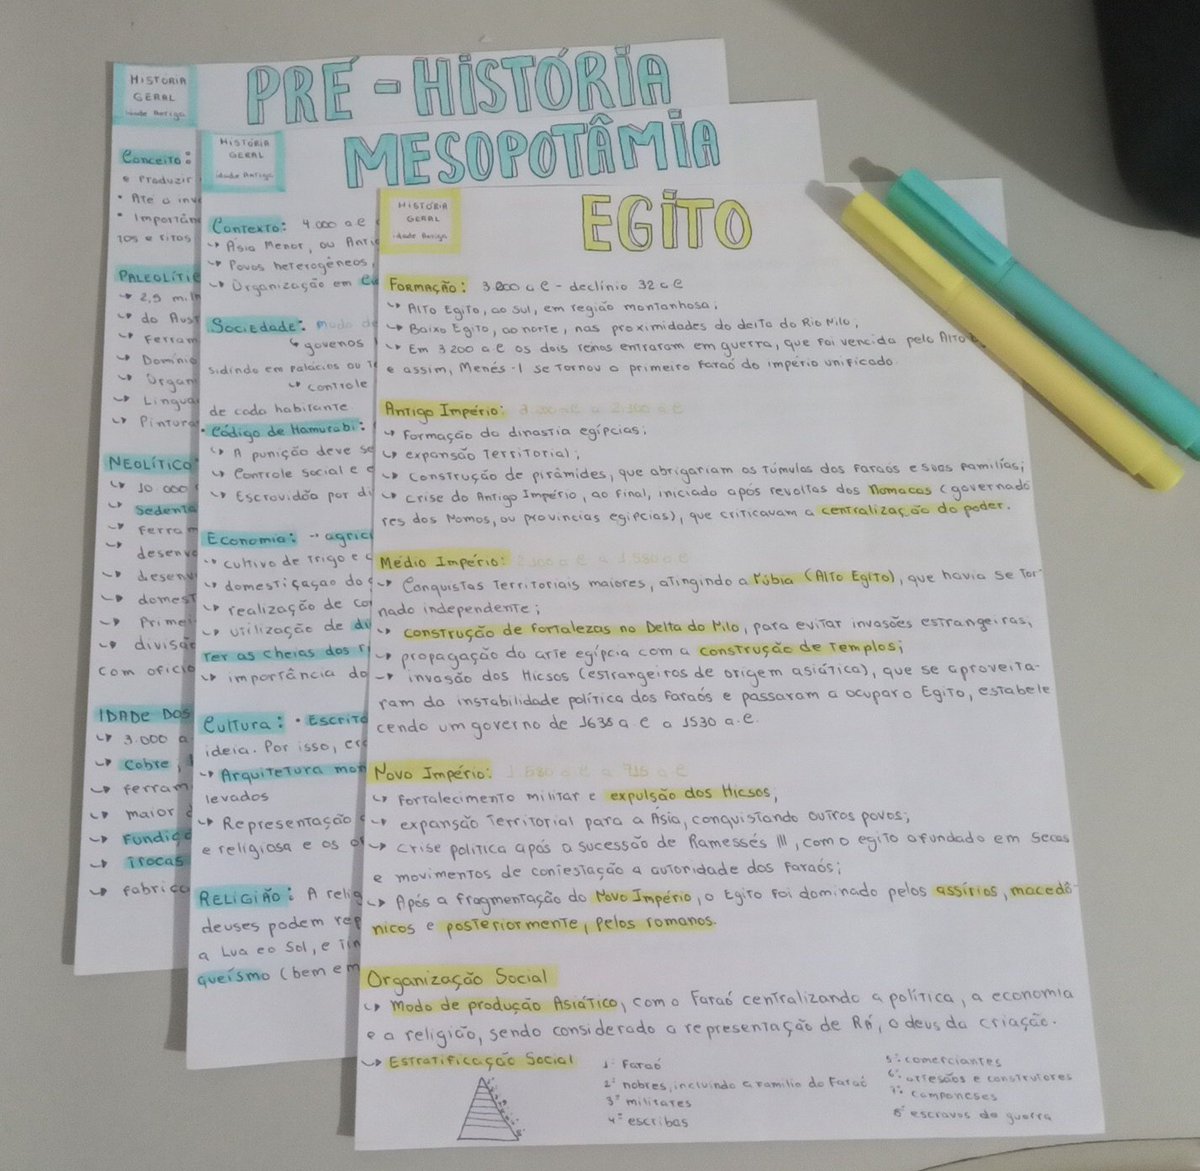 HISTÓRIA
GERAL
idade Antiga
PRÉ-HISTÓRIA
Conceito:
e produzir
• Até a
• Importân
tos e ritos
PALEOLÍTI
↳ 2,5
↳ do Aust
↳ Ferram
↳ Domínio
↳ Organi
↳ Lingua
↳ Pintura
NEOLÍTICO
↳ 10.000
↳ Sedenta
↳ Ferram
↳ desenvo
↳ desenv
↳ domest
↳ Primei
↳ divisão
com ofício
IDADE DOS
↳ 3.000 a
↳ Cobre,
↳ ferram
↳ maior
↳ Fundiçã
↳ Trocas
↳ fabrica
HISTÓRIA
GERAL
idade Antiga
MESOPOTÂMIA
Contexto: 4.000 a.C
↳ Ásia Menor, ou Anti
↳ Povos heterogêneos,
↳ Organização em
Sociedade: modo de
↳ governos
sidindo em palácios ou
↳ controle
de cada habitante.
• Código de Hamurabi:
↳ A punição deve se
↳ Controle social e
↳ Escravidão por di
Economia: → agric
↳ cultivo de trigo e
↳ domesticaçao do
↳ realização de co
↳ utilização de di
ter as cheias dos
↳ importância do
Cultura: • Escrita
ideia. Por isso, cr
↳ Arquitetura mon
levados
↳ Representação
e religiosa e os
RELIGIÃO: A relig
deuses podem rep
a Lua e o Sol, e
queísmo (bem e m
HISTÓRIA
GERAL
idade Antiga
EGITO
Formação: 3.200 a.C - declínio 32 a.C
↳ Alto Egito, ao sul, em região montanhosa;
↳ Baixo Egito, ao norte, nas proximidades do delta do Rio Nilo;
↳ Em 3200 a.C os dois reinos entraram em guerra, que foi vencida pelo Alto
e assim, Menés-I se tornou o primeiro Faraó do império unificado.
Antigo Império: 3.200 a.C a 2.300 a.C
↳ Formação da dinastia egípcias;
↳ expansão territorial;
↳ construção de pirâmides, que abrigariam os túmulos dos Faraós e suas famílias;
↳ crise do Antigo Império, ao final, iniciado após revoltas dos Nomacas (governado
res dos Nomos, ou províncias egípcias), que criticavam a centralização do poder.
Médio Império: 2.100 a.C a 1.580 a.C
↳ Conquistas territoriais maiores, atingindo a Núbia (Alto Egito), que havia se tor-
nado independente;
↳ construção de fortalezas no Delta do Nilo, para evitar invasões estrangeiras,
↳ propagação da arte egípcia com a construção de templos;
↳ invasão dos Hicsos (estrangeiros de origem asiática), que se aproveita-
ram da instabilidade política dos faraós e passaram a ocupar o Egito, estabele
cendo um governo de 1638 a.C a 1530 a.C.
Novo Império: 1.580 a.C a 715 a.C
↳ Fortalecimento militar e expulsão dos Hicsos;
↳ expansão territorial para a Ásia, conquistando outros povos;
↳ crise política após a sucessão de Ramessés III, com o egito afundado em secas
e movimentos de contestação a autoridade dos faraós;
↳ Após a fragmentação do Novo Império, o Egito foi dominado pelos assírios, macedô-
nicos e posteriormente, pelos romanos.
Organização Social
↳ Modo de produção Asiático, com o Faraó centralizando a política, a economia
e a religião, sendo considerado a representação de Rá, o deus da criação.
↳ Estratificação Social
1º Faraó
2º nobres, incluindo a família do Faraó
3º militares
4º escribas
5º comerciantes
6º artesãos e construtores
7º camponeses
8º escravos de guerra